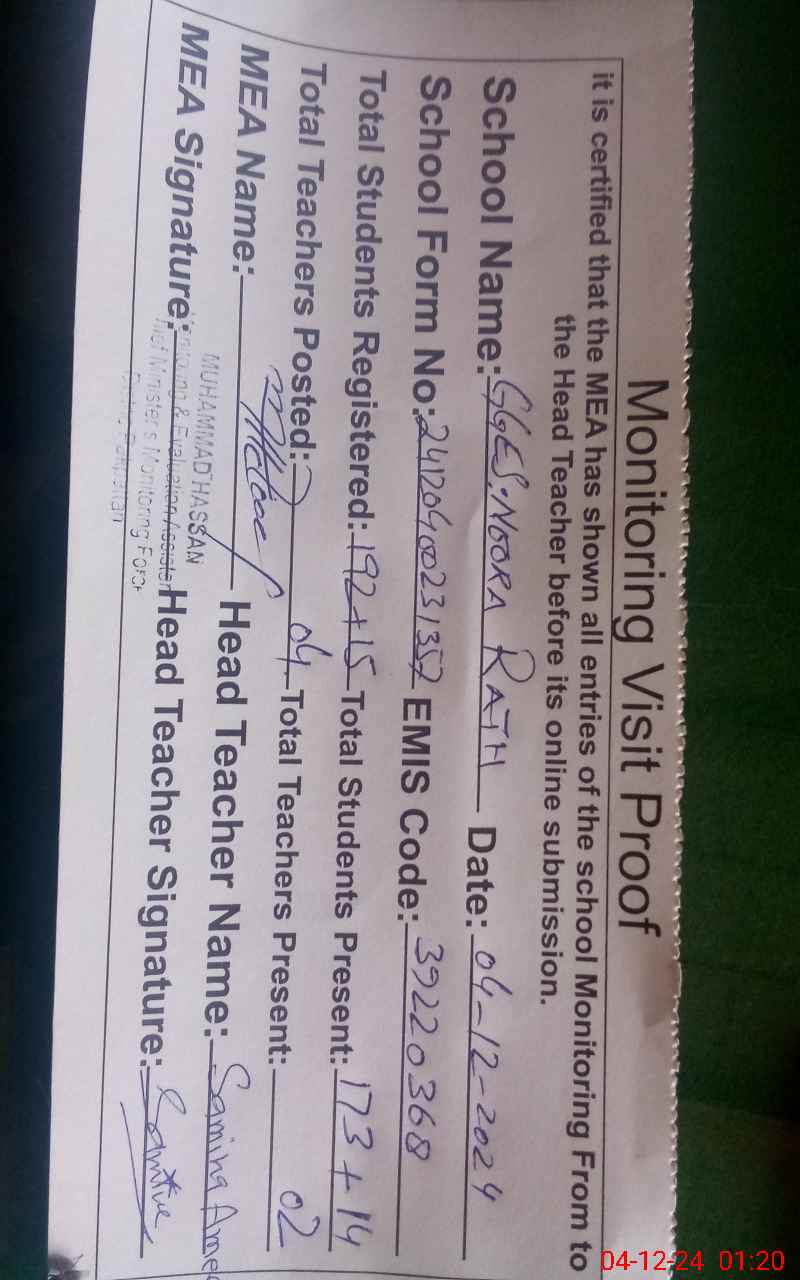 Monitoring Visit Proof
it is certified that the MEA has shown all entries of the school Monitoring From to
the Head Teacher before its online submission.
School Name: GGES. NOORA RATH Date: 04-12-2024
School Form No: 24120400231357 EMIS Code: 39220368
Total Students Registered: 192+15 Total Students Present: 173+14
Total Teachers Posted: 04 Total Teachers Present: 02
MEA Name: Head Teacher Name: Samina
MUHAMMAD HASSAN
MEA Signature: Head Teacher Signature:
Monitoring & Evaluation Assistant
Chief Minister's Monitoring Force
04-12-24 01:20